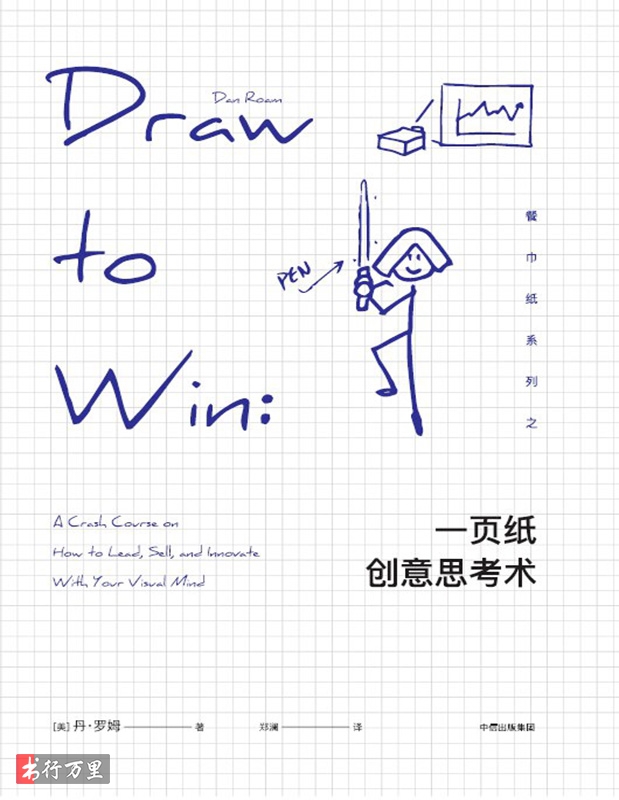 Draw
Dan Roam
to
PEN
Win:
餐巾纸系列之
A Crash Course on
How to Lead, Sell, and Innovate
With Your Visual Mind
一页纸
创意思考术
[美] 丹·罗姆 著 郑澜 译 中信出版集团
书行万里